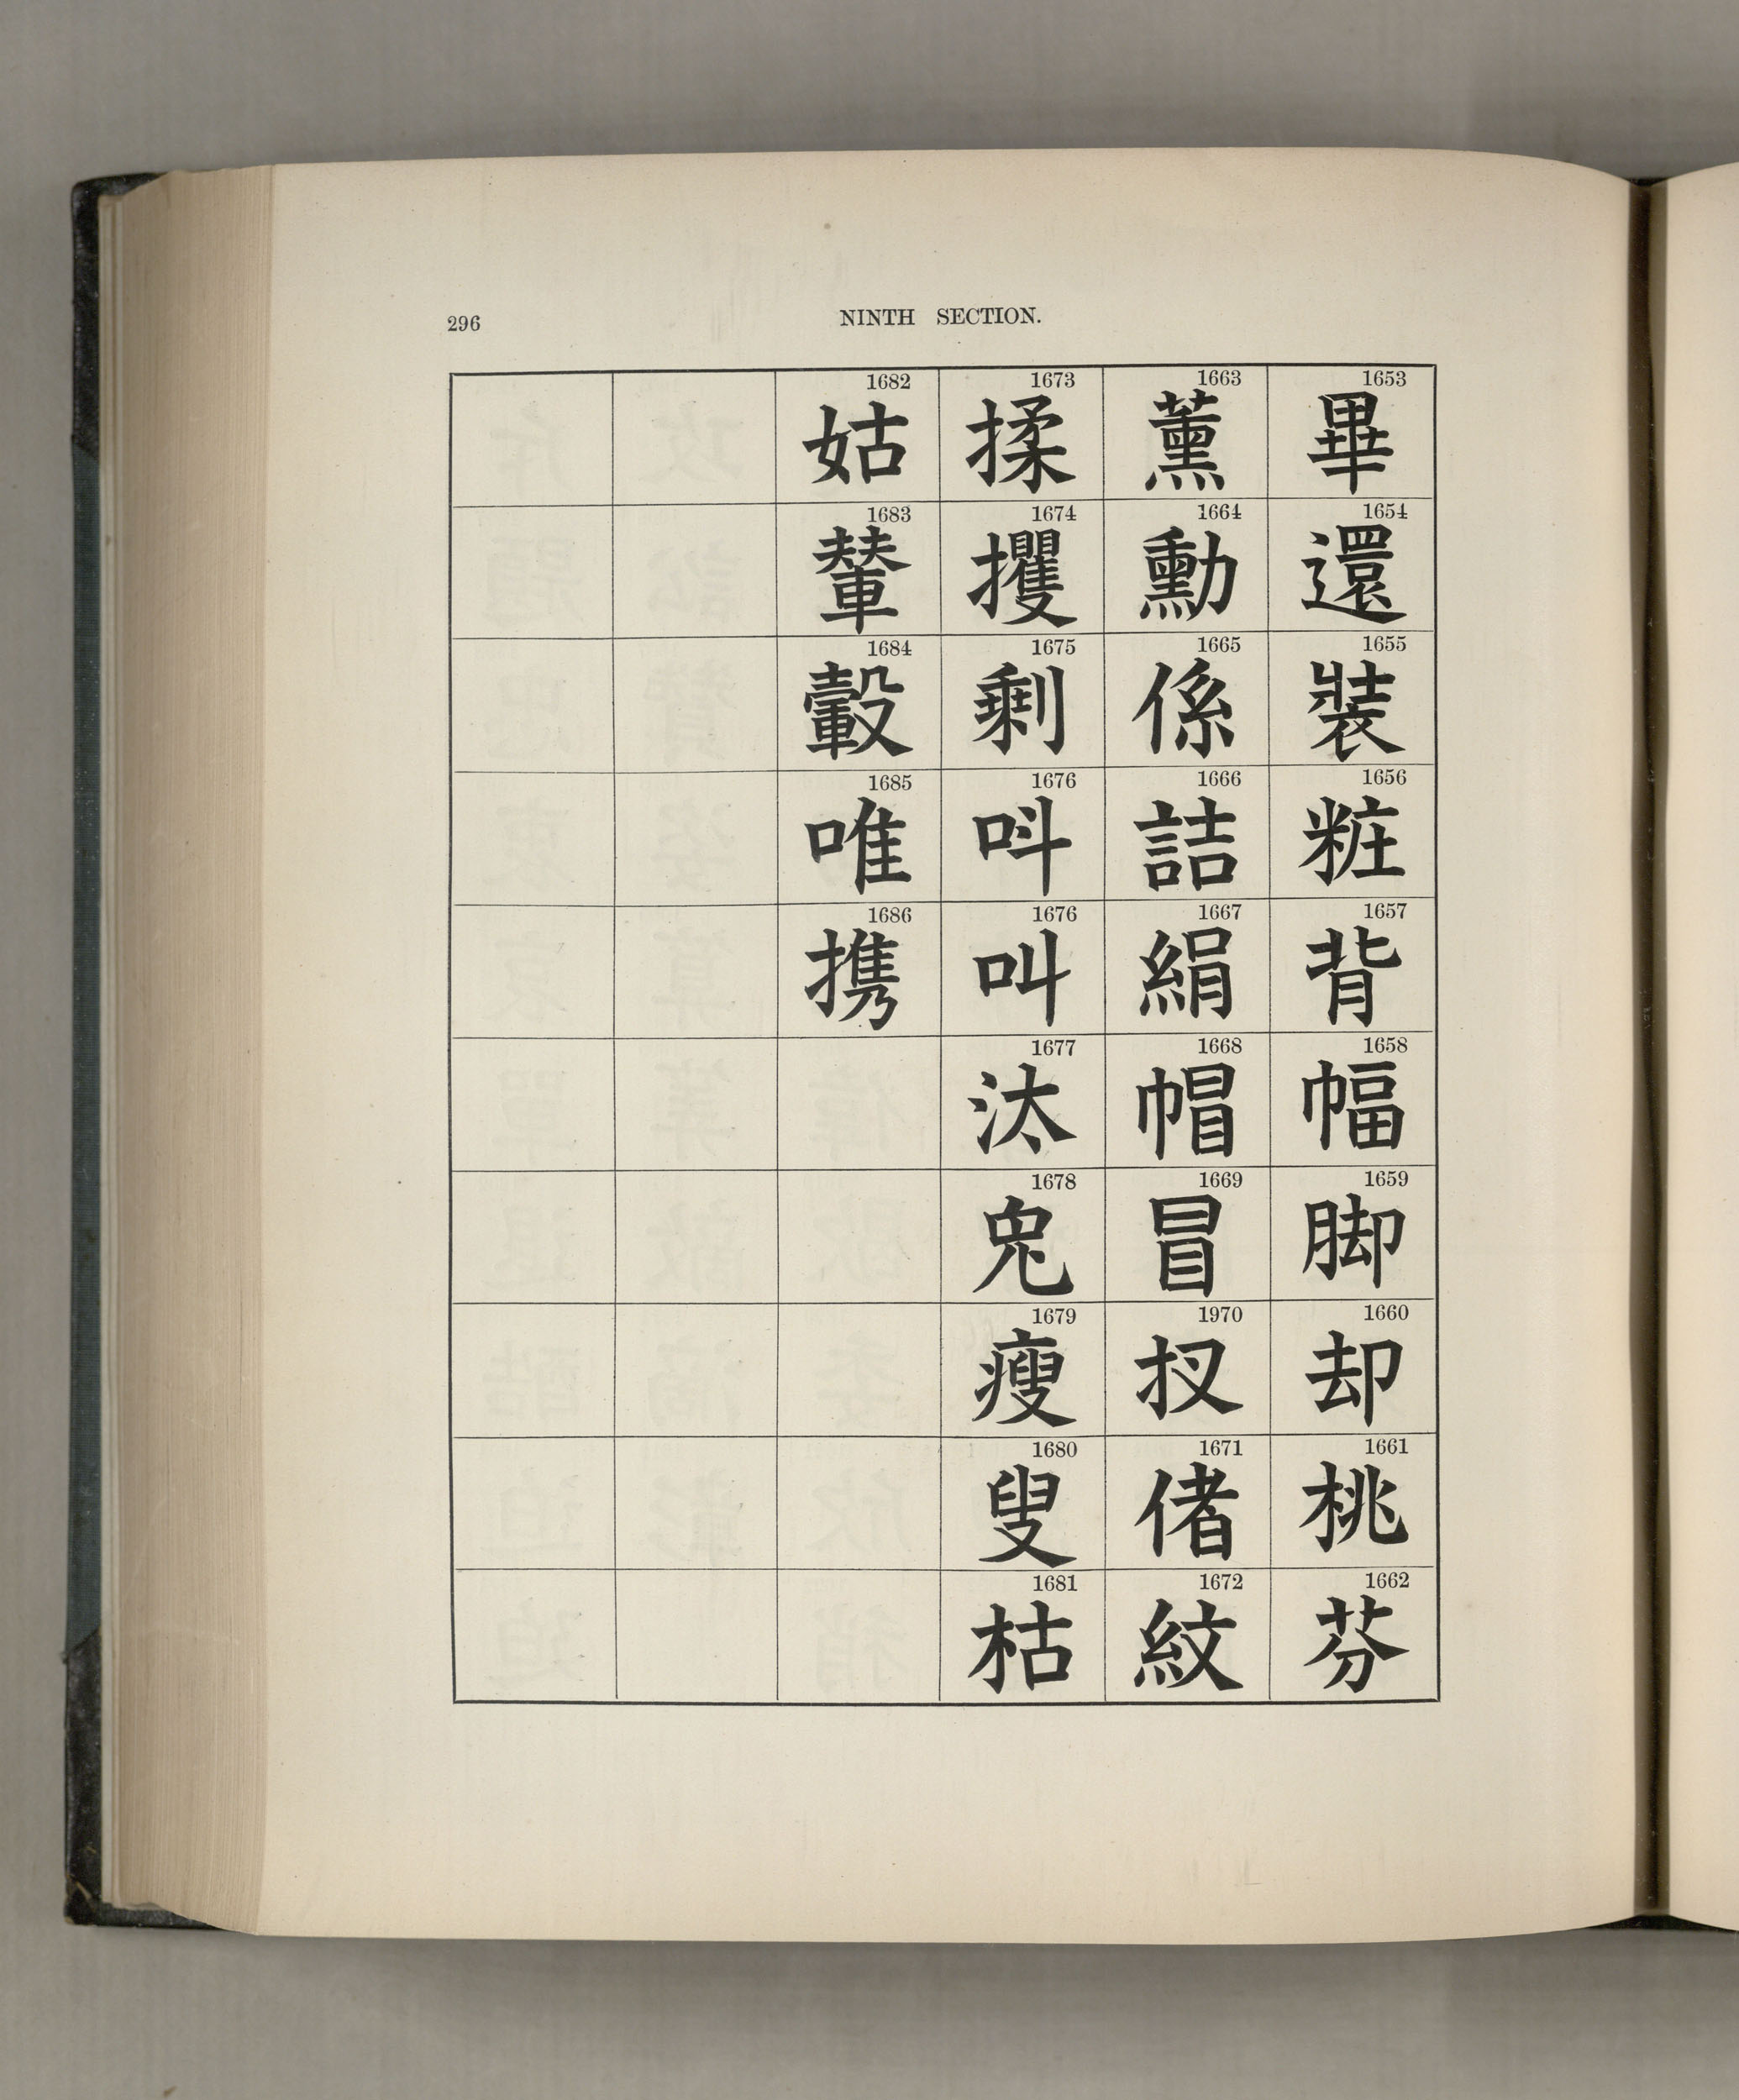 296
NINTH SECTION.
1653 畢
1654 還
1655 裝
1656 粧
1657 背
1658 幅
1659 脚
1660 却
1661 桃
1662 芬
1663 薰
1664 勳
1665 係
1666 詰
1667 絹
1668 帽
1669 冒
1970 扠
1671 偖
1672 紋
1673 揉
1674 攫
1675 剩
1676 呌
1676 叫
1677 汰
1678 兎
1679 瘦
1680 叟
1681 枯
1682 姑
1683 輦
1684 轂
1685 唯
1686 携